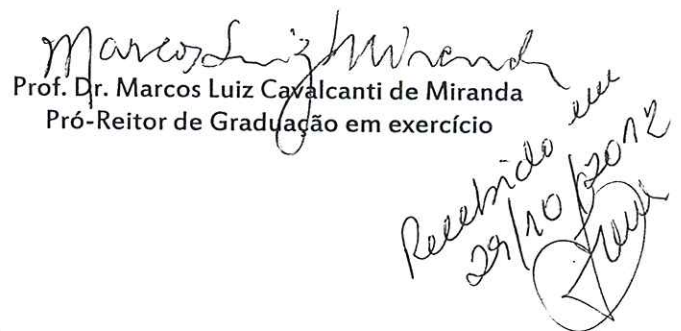 Marcos Luiz Miranda
Prof. Dr. Marcos Luiz Cavalcanti de Miranda
Pró-Reitor de Graduação em exercício
Recebido em
29/10/2012